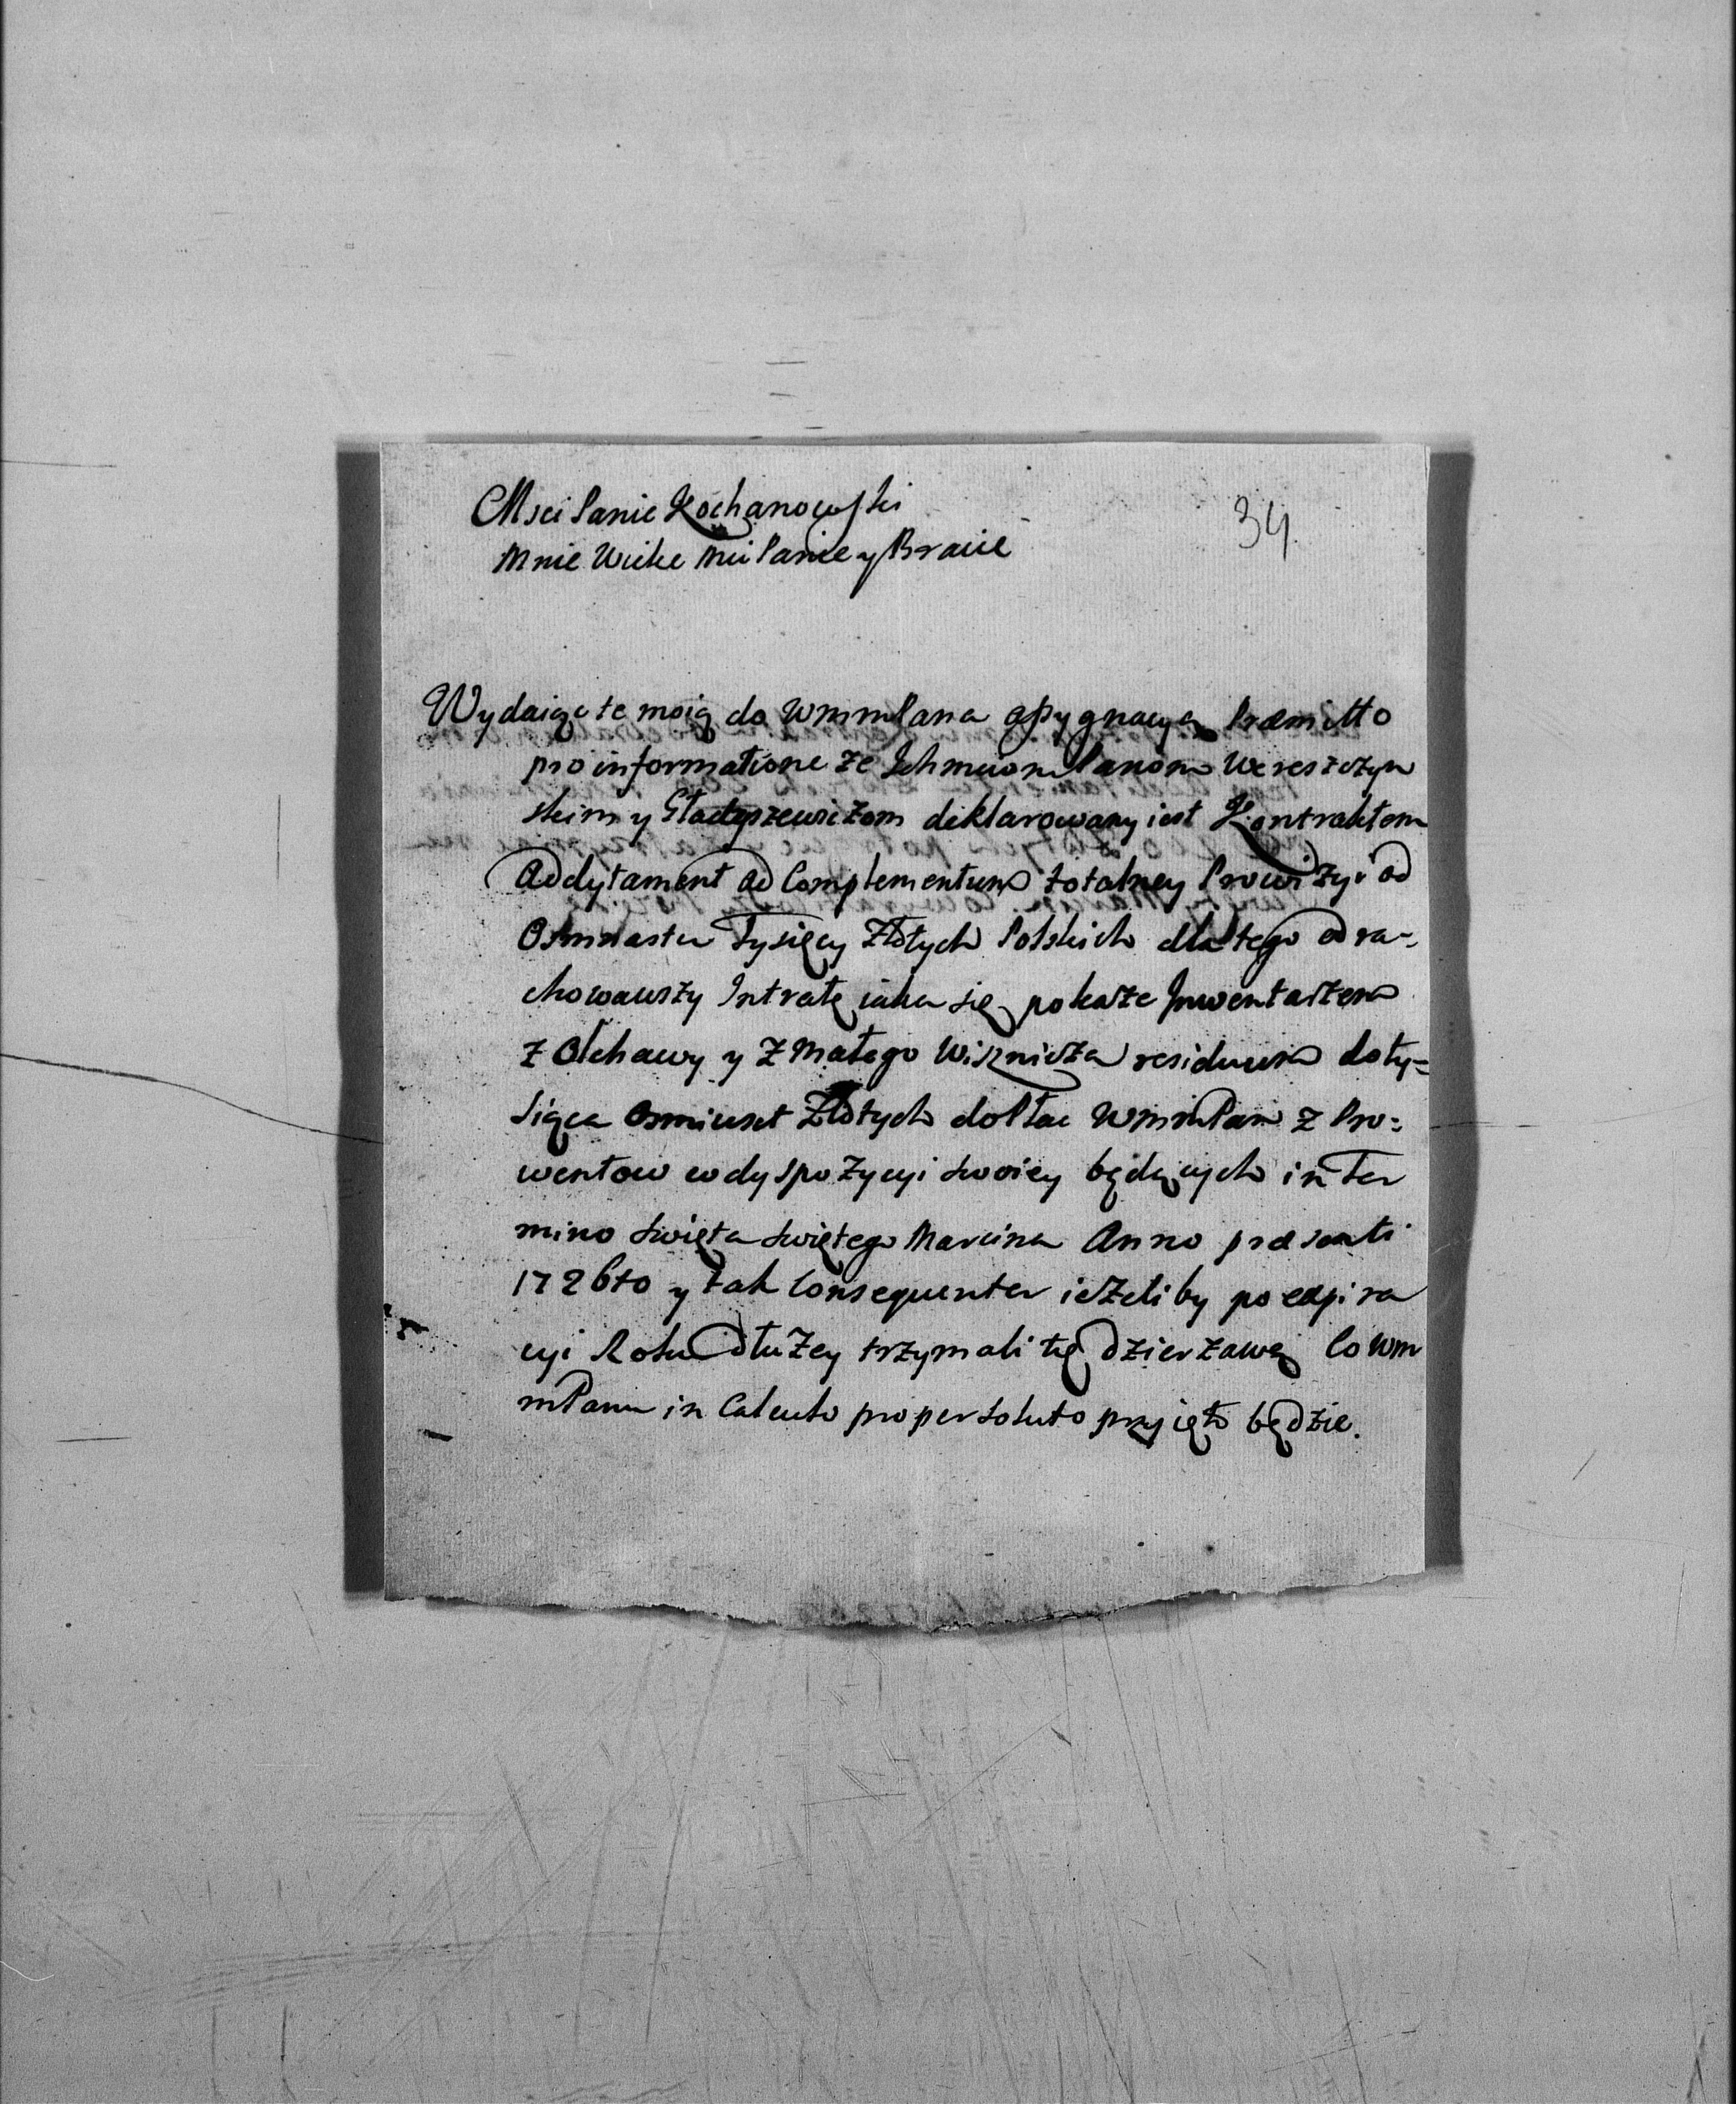 Msci Panie Kochanowski
34
Mnie Wielce Msci Panie y Bracie
Wydaiąc te moię do WmmPana assygnacyą Præmitto
pro informatione ze Ichmciom Panom Wereszczyn
skim y Gładyszewiczom deklarowany iest Kontraktem
Addytament ad Complementum totalney Prowizyi od
Osmnastu Tysięcy Złotych Polskich dla tego odra-
chowawszy Intratę iaka się pokaże Inwentarzem
z Olchawy y z Małego Wisznicza residuum do ty=
siąca osmiuset Złotych dopłac WmmPan z Pro=
wentow w dyspozycyi swoiey będących in Ter
mino swięta swiętego Marcina Anno præsenti
1726to y tak consequenter ieżeliby po expira
cyi Roku dłużey trzymali tę dzierzawę Co Wm
mPanu in Calculo pro persoluto przyięto będzie.